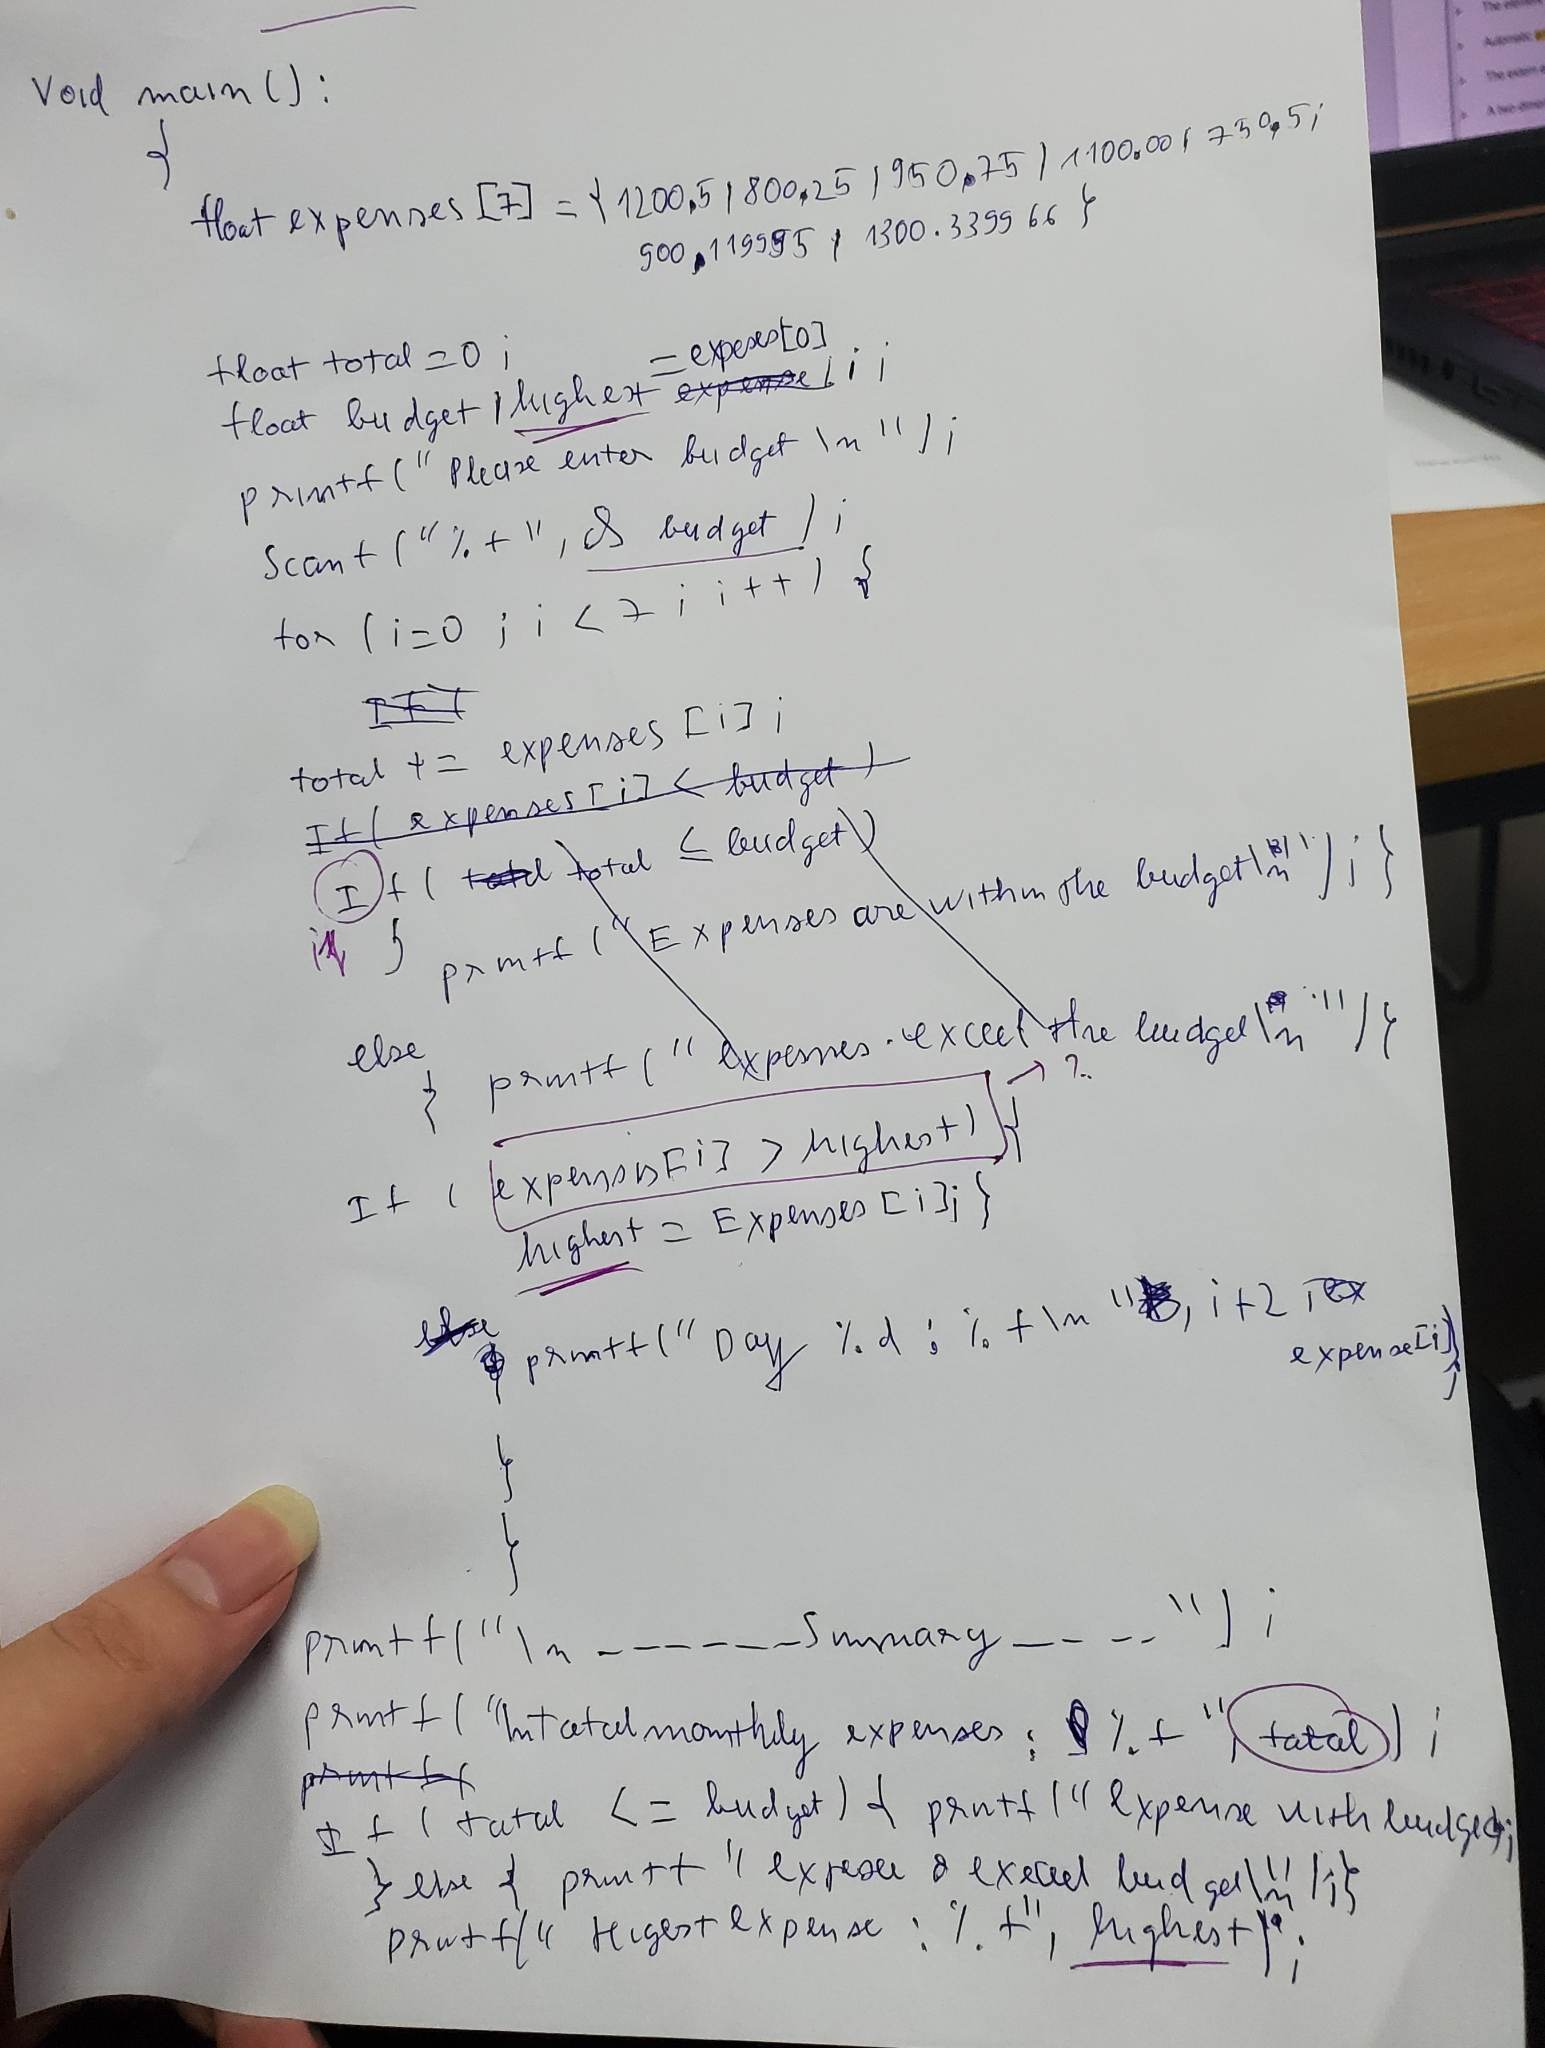 Void main():
{
float expenses [7] = { 1200,5, 800,25, 950,75, 1100.00, 750,5,
900,119995, 1300.339966 }
float total = 0;
= expeses[0]
float budget, highest expense, i;
printf("Please enter budget \n");
Scanf("%f", & budget);
for (i=0; i<7; i++) {
If(
total += expenses [i];
If( expenses[i] < budget)
If( total total ≤ budget)
if {
printf("Expenses are within the budget\n");}
else
{ printf("expenses exceet the budget\n")}
→ ?
If (expenses[i] > highest) {
highest = Expenses [i];}
else
{ printf("Day %d: %f\n", i+2, ex
expense[i]);
}
}
printf("\n ------Summary----");
printf("\ntatal monthly expenses: %f", tatal);
printf(
If (tatal <= budget) { printf("Expense with budget;
} else { printf "expese exceed budget\n");}
printf("Higest expense: %f", highest);